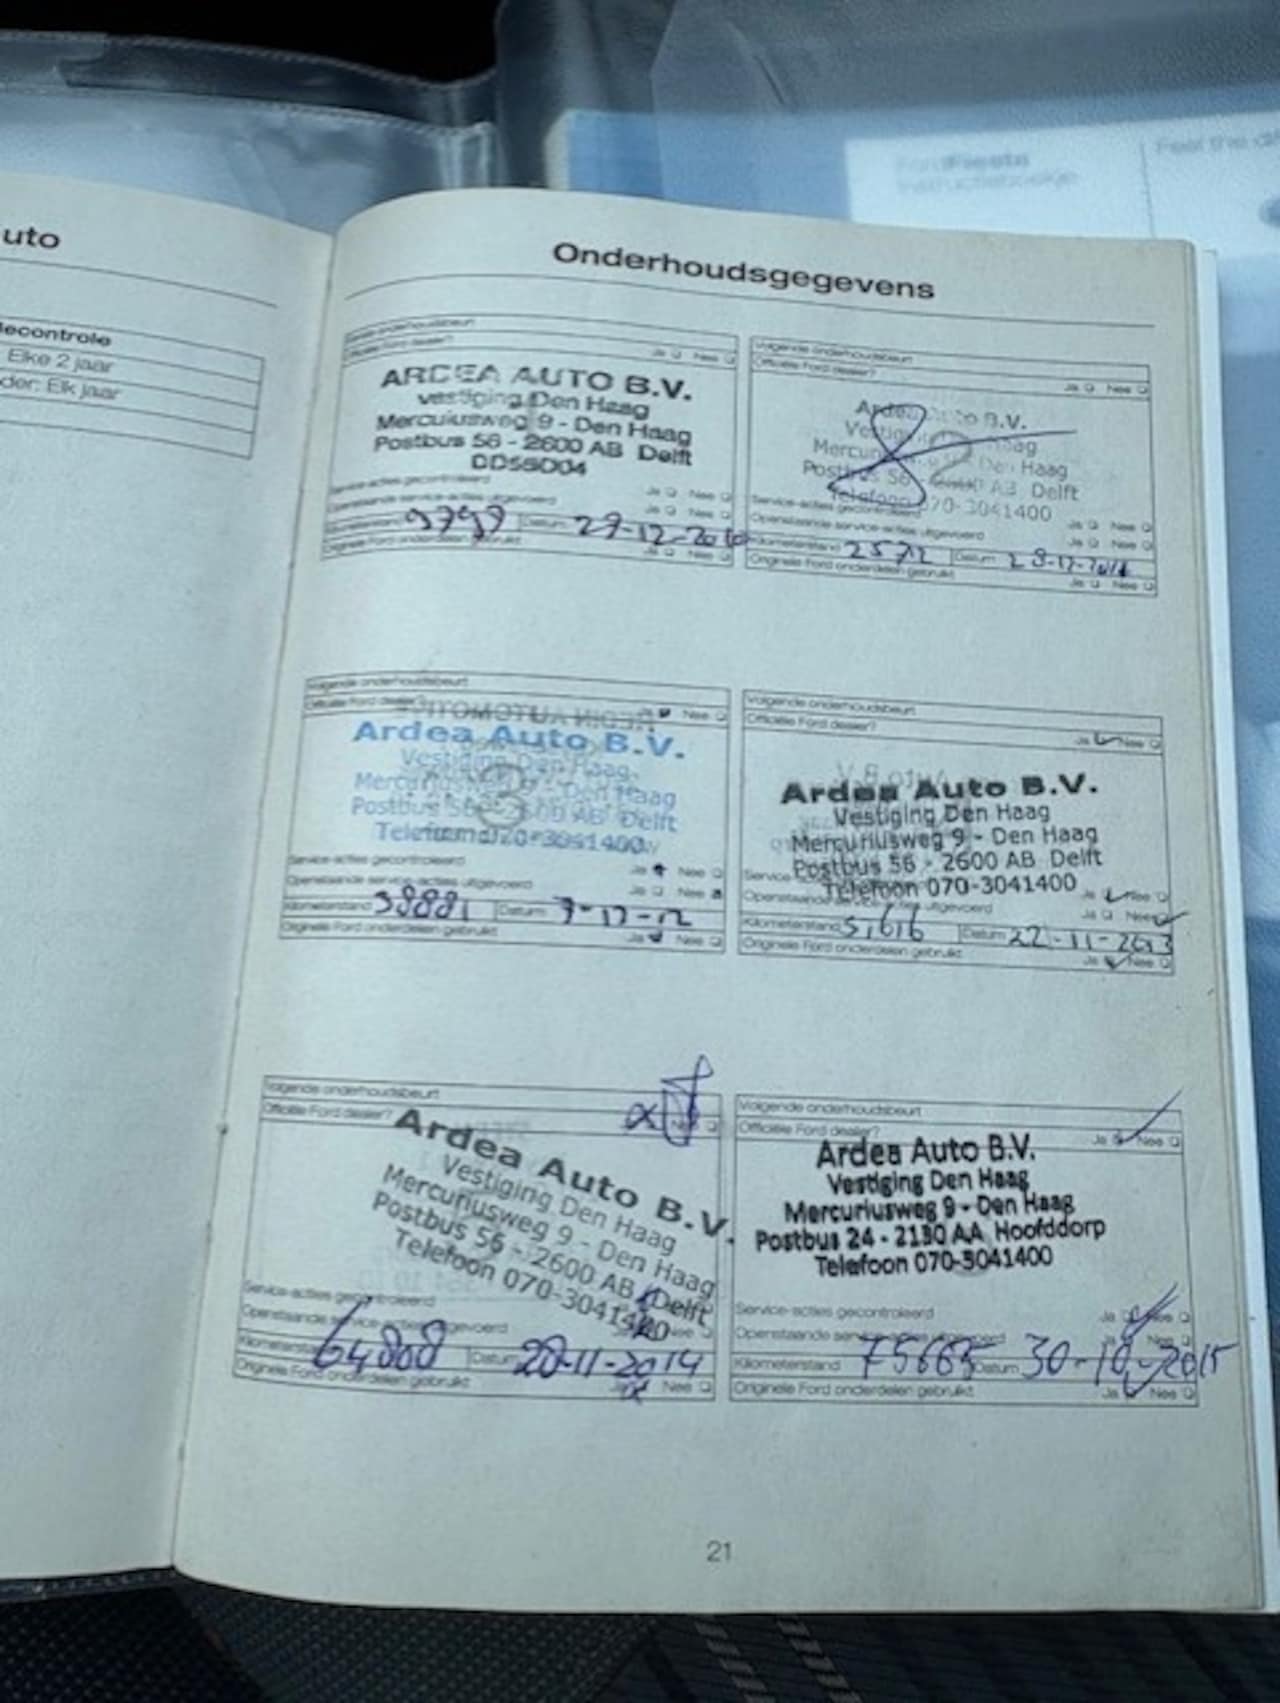 uto
econtrole
Elke 2 jaar
der: Elk jaar
FordFiesta
Instructieboekje
Feel the di
Onderhoudsgegevens
Volgende onderhoudsbeurt
Officiële Ford dealer?
Ja Nee
ARDEA AUTO B.V.
vestiging Den Haag
Mercuriusweg 9 - Den Haag
Postbus 56 - 2600 AB Delft
DD55D04
Service-acties gecontroleerd Ja Nee
Openstaande service-acties uitgevoerd Ja Nee
Kilometerstand 9799 Datum 29-12-2010
Originele Ford onderdelen gebruikt Ja Nee
Volgende onderhoudsbeurt
Officiële Ford dealer?
Ja Nee
Ardea Auto B.V.
Vestiging Den Haag
Mercuriusweg 9 - Den Haag
Postbus 56 - 2600 AB Delft
Telefoon 070-3041400
Service-acties gecontroleerd Ja Nee
Openstaande service-acties uitgevoerd Ja Nee
Kilometerstand Datum
Originele Ford onderdelen gebruikt Ja Nee
Volgende onderhoudsbeurt
Officiële Ford dealer? Ja Nee
Ardea Auto B.V.
Vestiging Den Haag
Mercuriusweg 9 - Den Haag
Postbus 56 - 2600 AB Delft
Telefoon 070-3041400
Service-acties gecontroleerd Ja Nee
Openstaande service-acties uitgevoerd Ja Nee
Kilometerstand 38881 Datum 7-12-12
Originele Ford onderdelen gebruikt Ja Nee
Volgende onderhoudsbeurt
Officiële Ford dealer?
Ja Nee
Ardea Auto B.V.
Vestiging Den Haag
Mercuriusweg 9 - Den Haag
Postbus 56 - 2600 AB Delft
Telefoon 070-3041400
Service Ja Nee
Openstaande service-acties uitgevoerd Ja Nee
Kilometerstand Datum 22-11-2013
Originele Ford onderdelen gebruikt Ja Nee
Volgende onderhoudsbeurt
Officiële Ford dealer? Nee
Ardea Auto B.V.
Vestiging Den Haag
Mercuriusweg 9 - Den Haag
Postbus 56 - 2600 AB Delft
Telefoon 070-3041400
Service-acties gecontroleerd
Openstaande service-acties uitgevoerd Nee
Kilometerstand 64808 Datum 20-11-2014
Originele Ford onderdelen gebruikt Nee
Volgende onderhoudsbeurt
Officiële Ford dealer? Ja Nee
Ardea Auto B.V.
Vestiging Den Haag
Mercuriusweg 9 - Den Haag
Postbus 24 - 2130 AA Hoofddorp
Telefoon 070-3041400
Service-acties gecontroleerd Ja Nee
Openstaande service-acties uitgevoerd Nee
Kilometerstand 75665 Datum 30-10-2015
Originele Ford onderdelen gebruikt Ja Nee
21